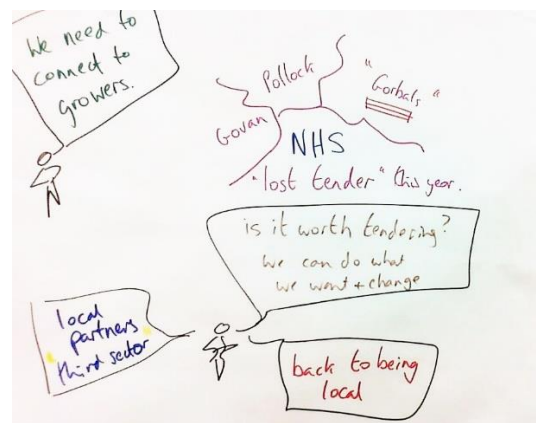 We need to
connect to
growers.
Govan
Pollock
"Gorbals"
NHS
"lost tender" this year.
is it worth tendering?
we can do what
we want + change
local
partners
third sector
back to being
local